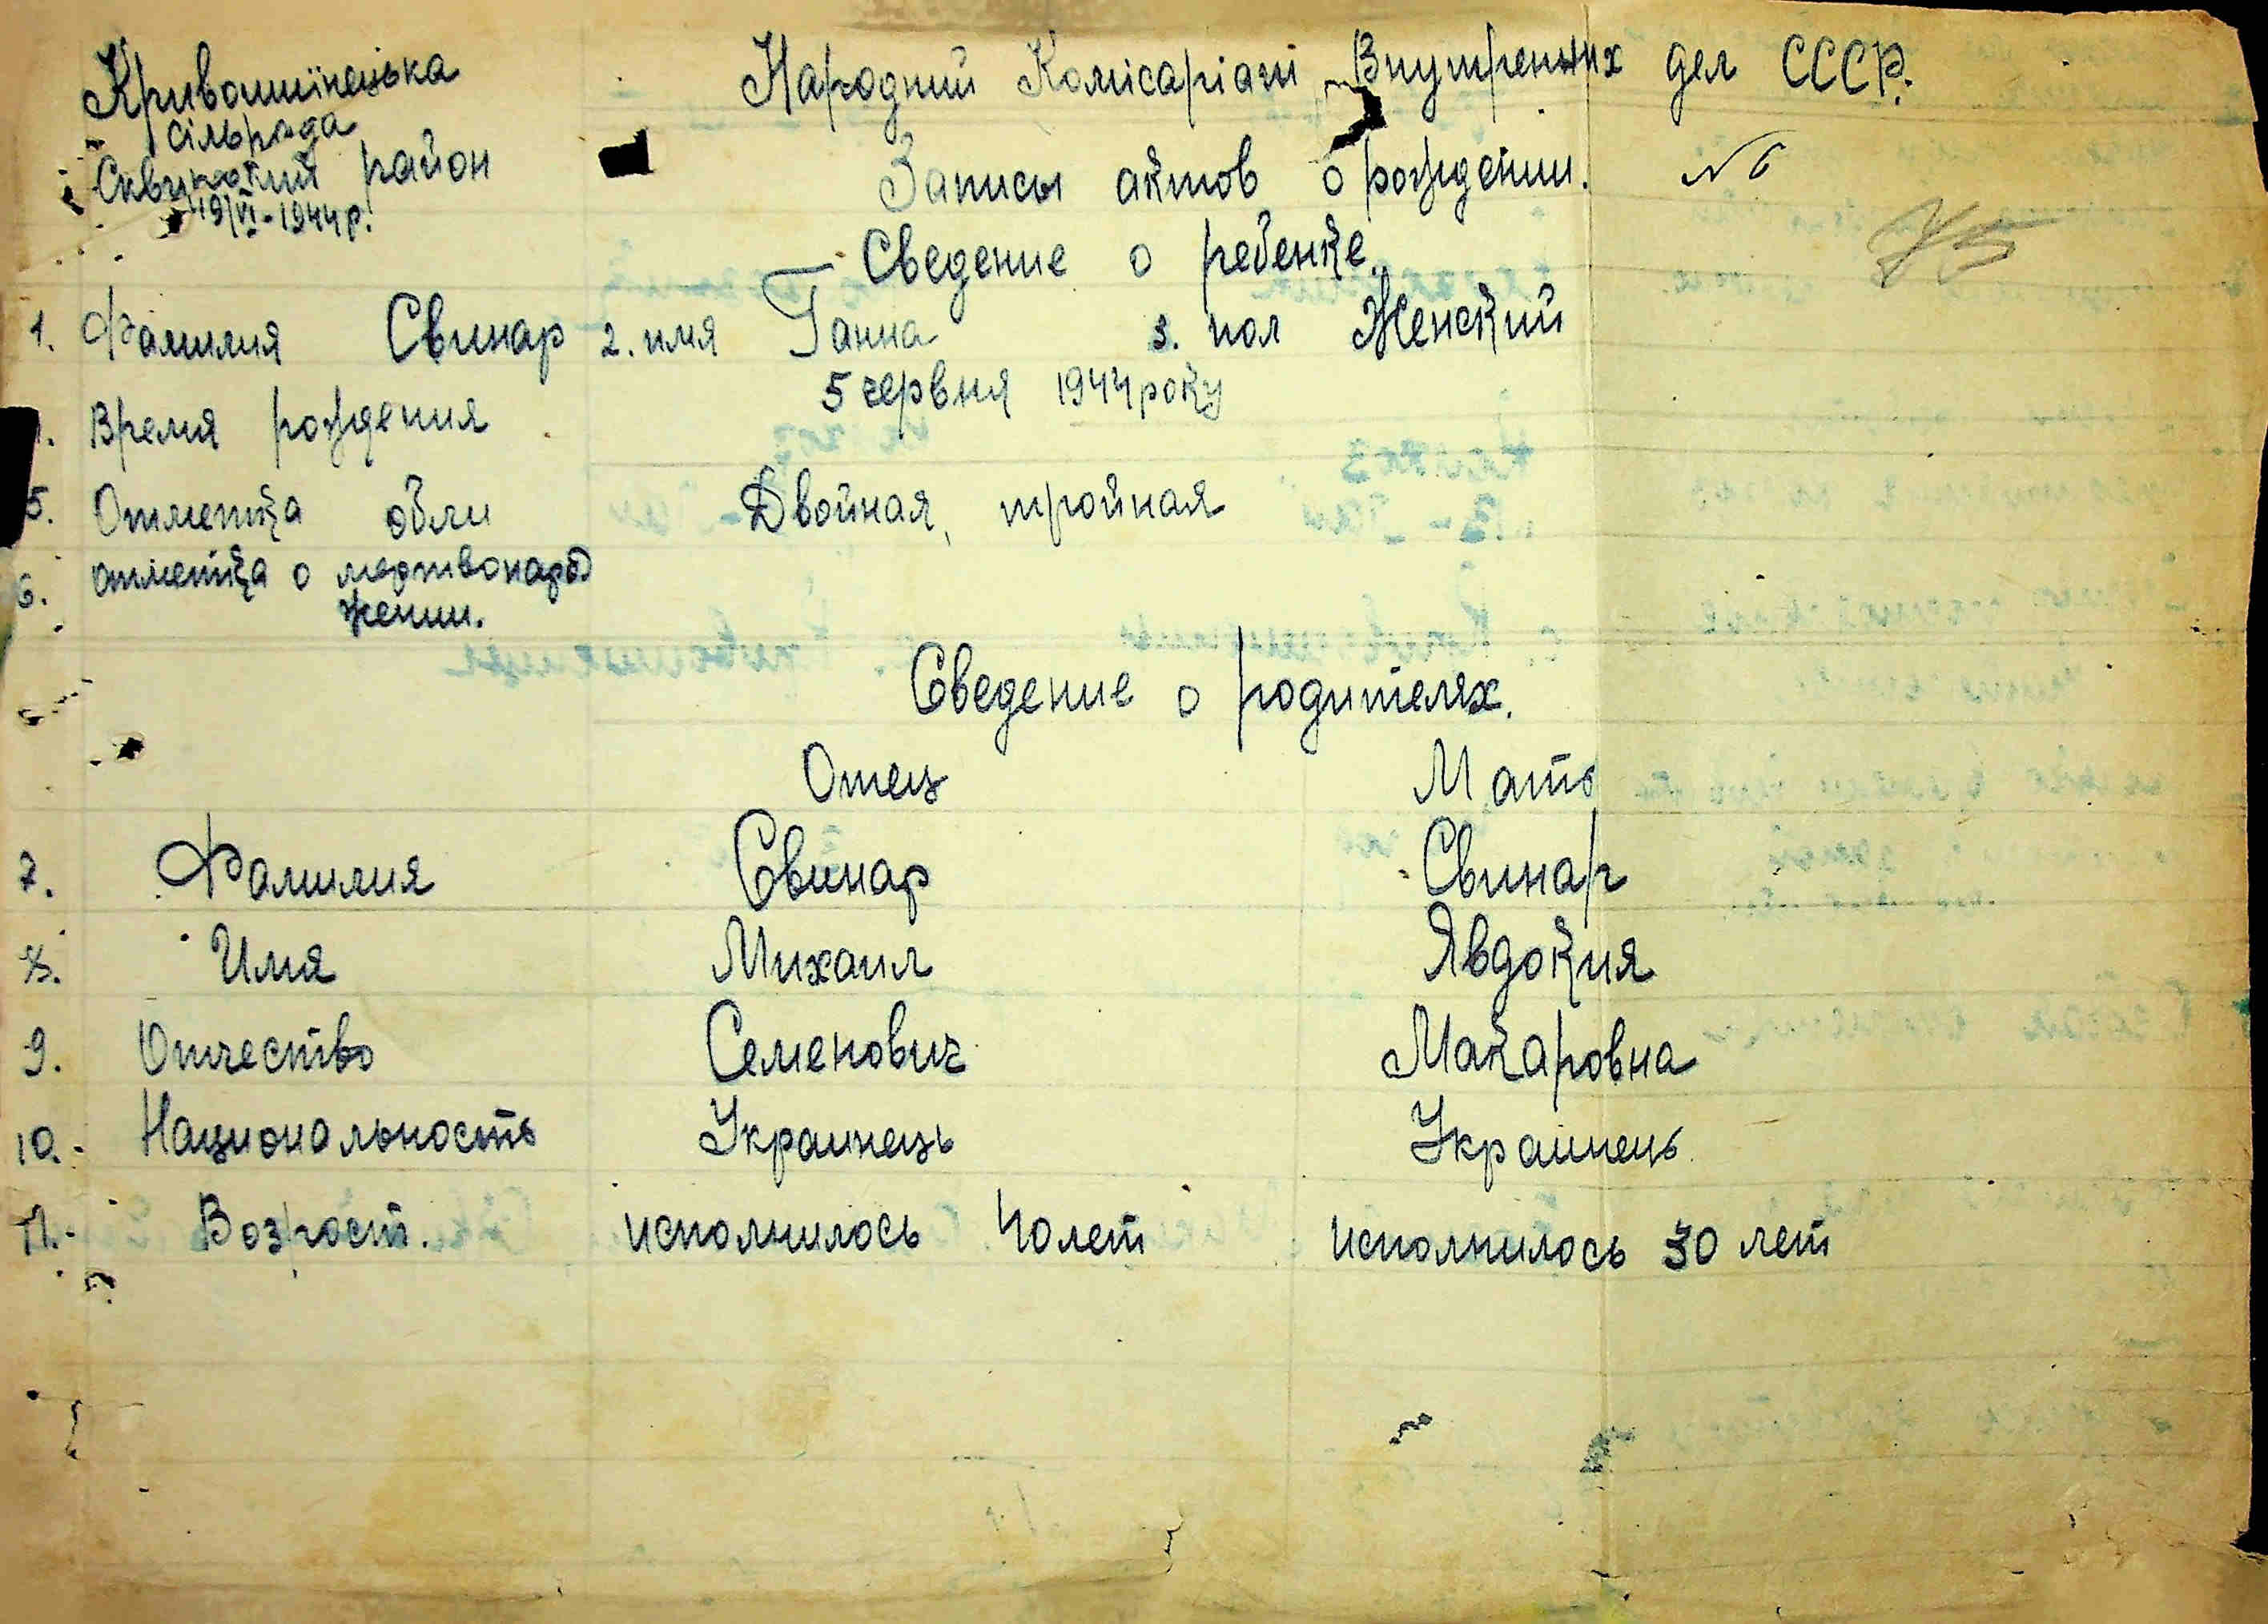 Кривошиїнецька
сільрада
Сквирский район
19/VI-1944р.
Народний Комісаріат Внутрених дел СССР.
Записы актов о рождении. № 6
75
Сведение о ребенке.
1. Фамилия Свинар 2. имя Ганна 3. пол Женский
5 червня 1944 року
Время рождения
5. Отметка обли Двойная, тройная
6. отметка о мертвонарож
жении.
Сведение о родителях.
Отец Мать
7. Фамилия Свинар Свинар
8. Имя Михаил Явдокия
9. Отчество Семенович Макаровна
10. Национальность Украинець Украинець
11. Возраст. исполнилось 40 лет исполнилось 30 лет